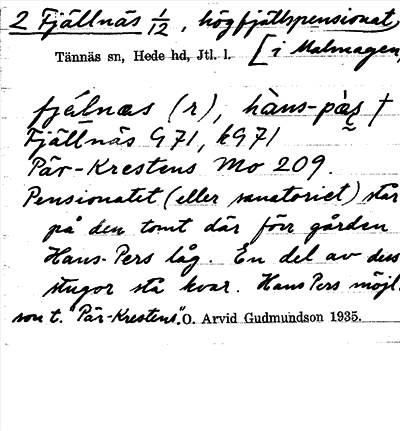 2 Fjällnäs 1/12, högfjällspensionat,
[i Malmagen,
Tännäs sn, Hede hd, Jtl. l.
fjélnæs (r), hàns-pæ̀ʂ †
Fjällnäs G71, kG71
Pär-Krestens Mo 209.
Pensionatet (eller sanatoriet) står
på den tomt där förr gården
Hans-Pers låg. En del av dess
stugor stå kvar. Hans Pers möjl.
son t. "Pär-Krestens". O. Arvid Gudmundson 1935.